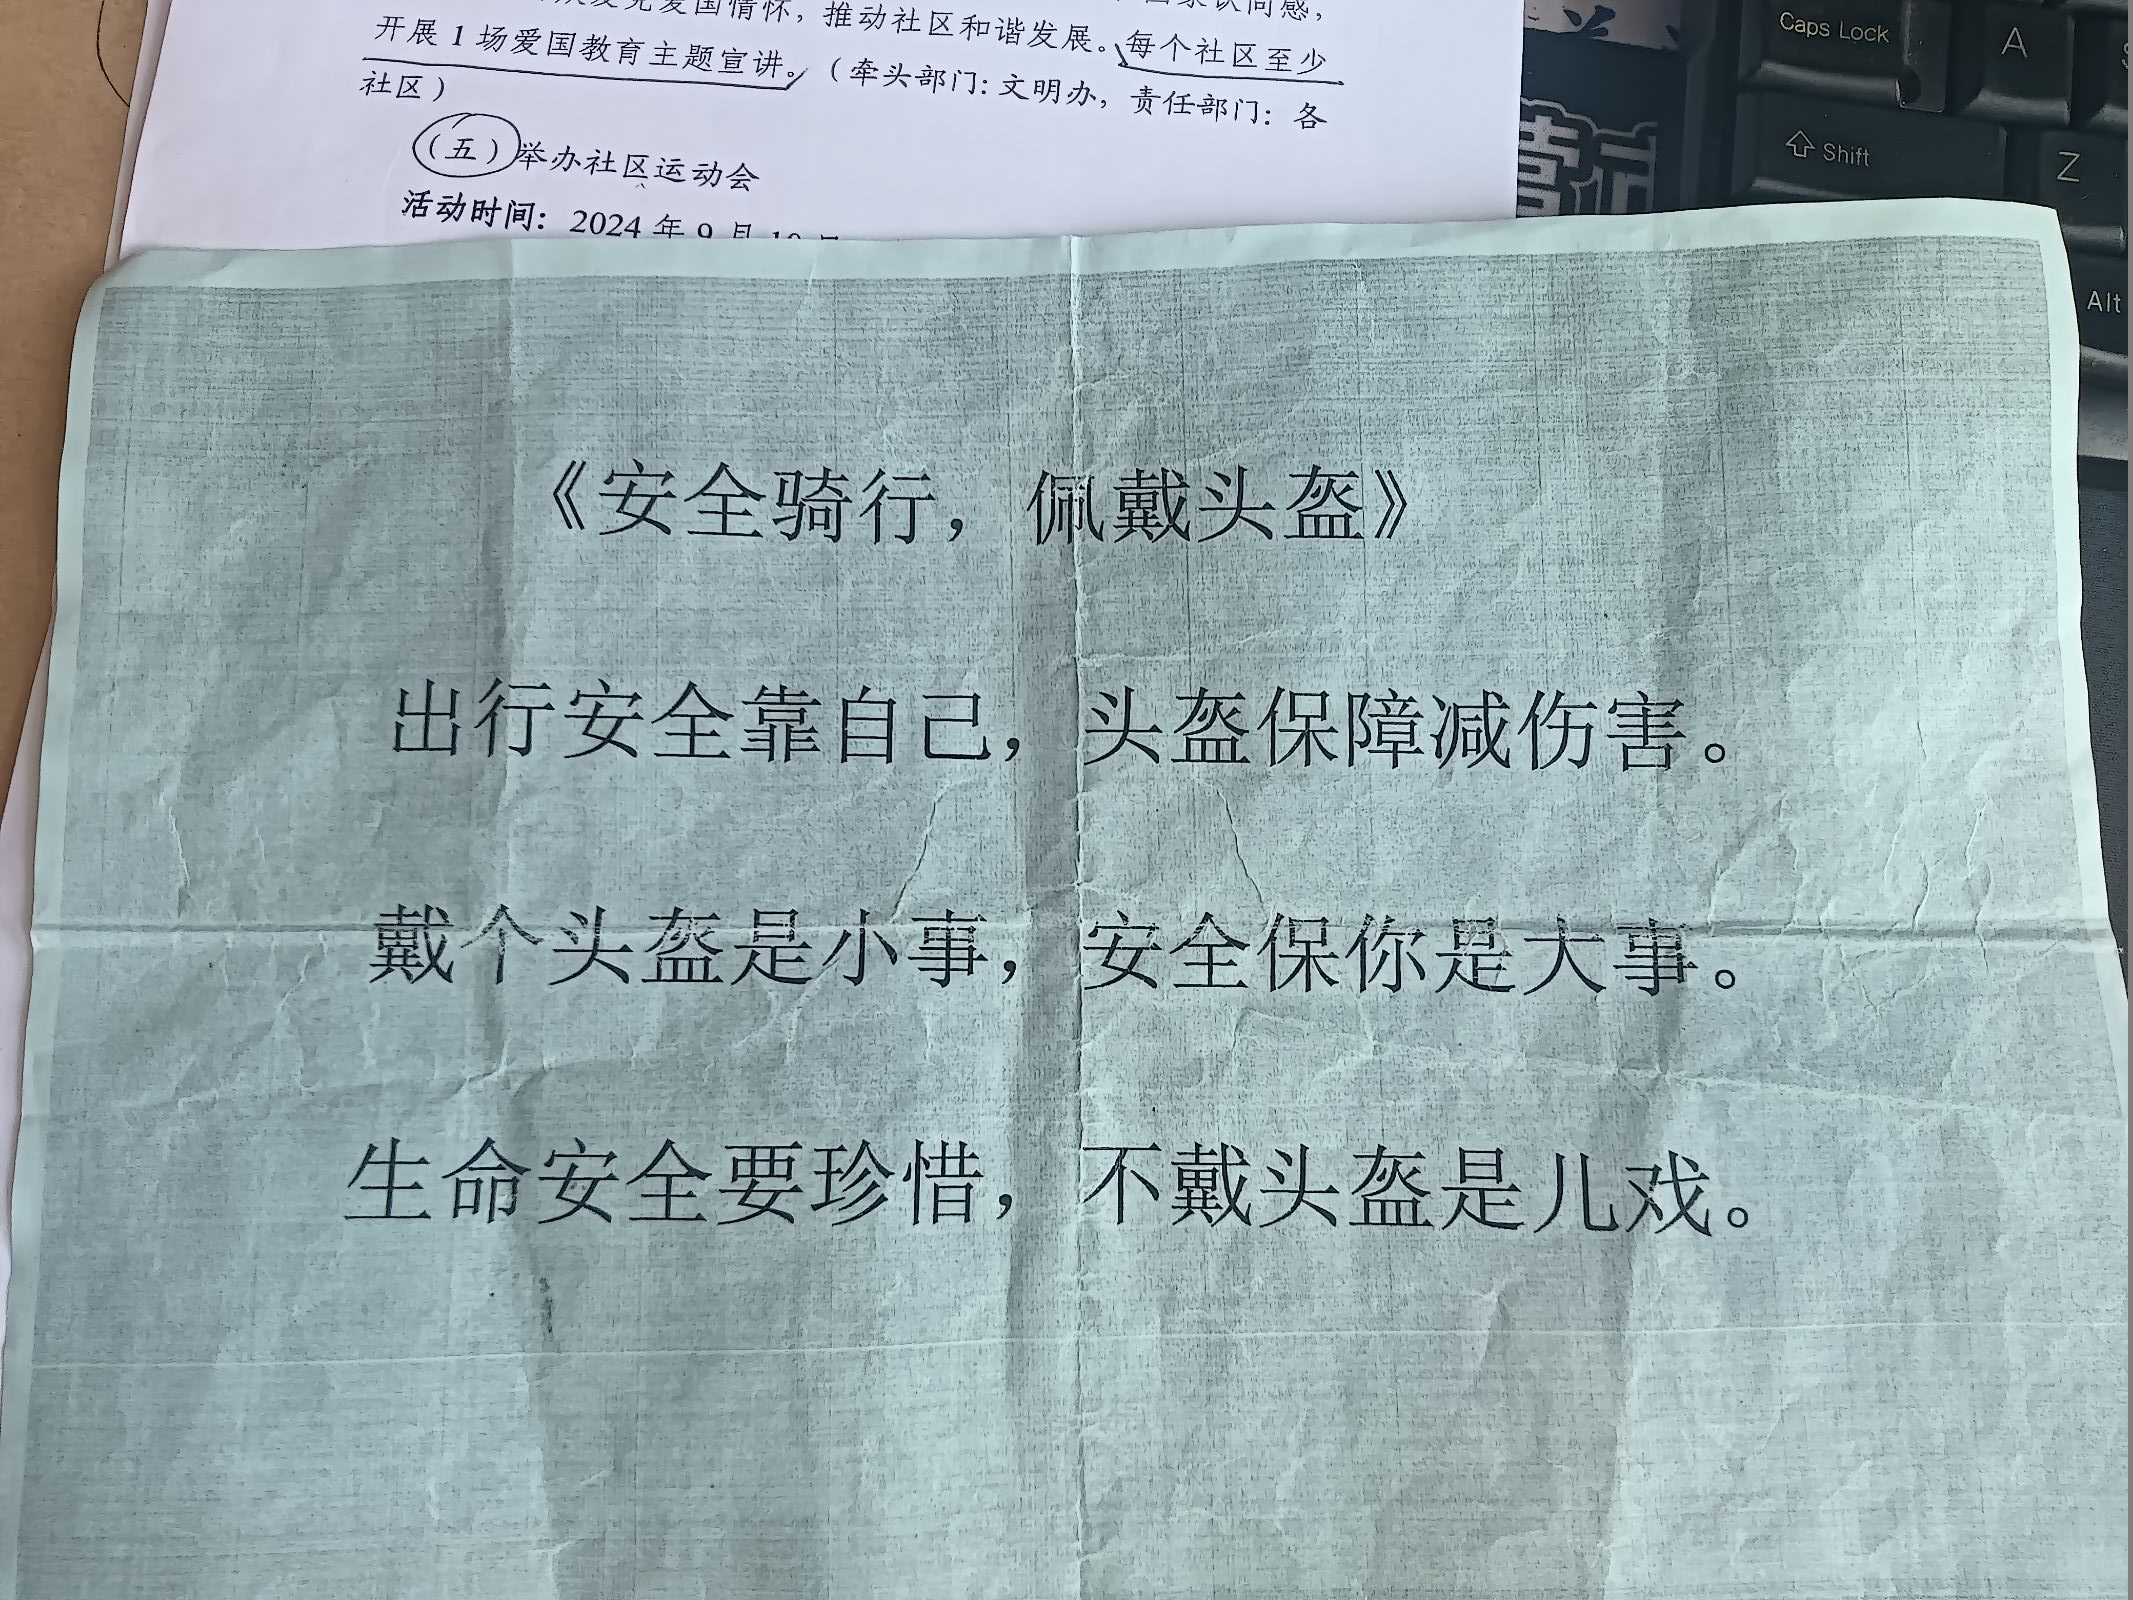 爱国情怀，推动社区和谐发展。每个社区至少
开展1场爱国教育主题宣讲。（牵头部门：文明办，责任部门：各
社区）
（五）举办社区运动会
活动时间：2024年9月10日
Caps Lock
A
Shift
Z
Alt
《安全骑行，佩戴头盔》
出行安全靠自己，头盔保障减伤害。
戴个头盔是小事，安全保你是大事。
生命安全要珍惜，不戴头盔是儿戏。